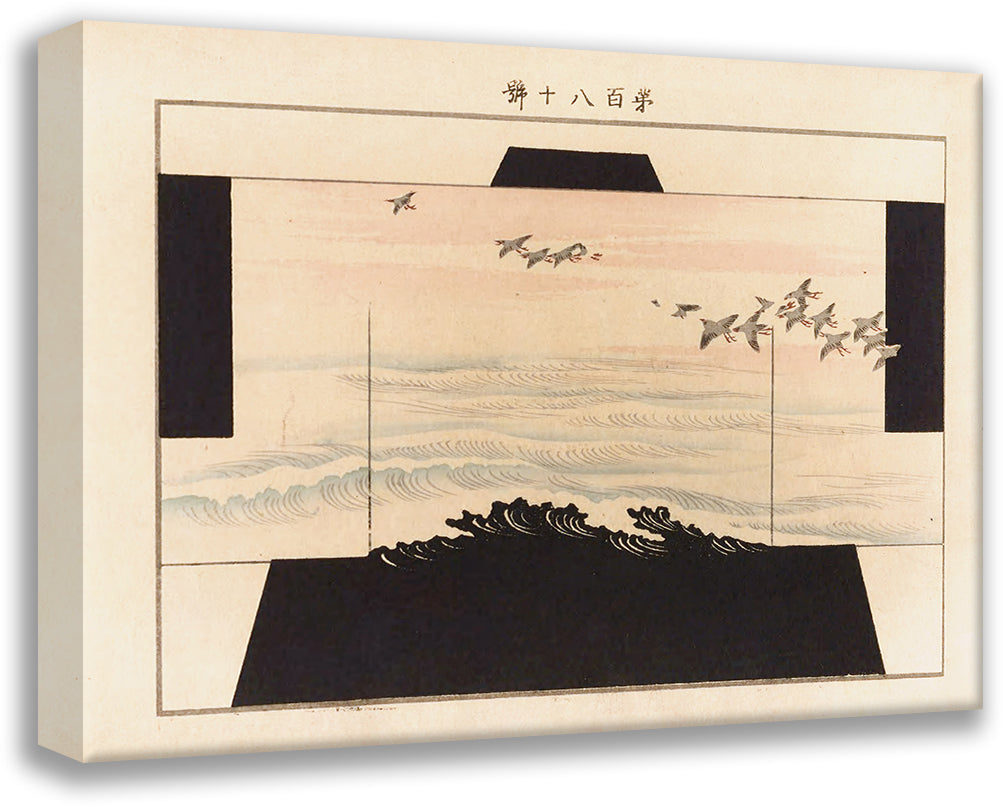 第百八十號